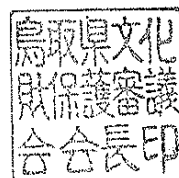 鳥取県文化
財保護審議
会会長印